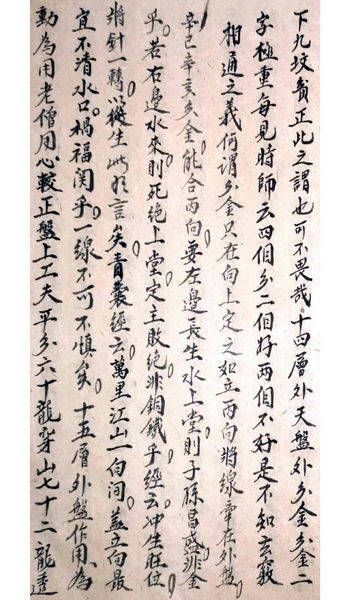 下九坟貧正此之謂也可不畏哉十四層外天盤外分金分金二
字極重每見時師云四個分二個好兩個不好是不知玄竅
相通之義何謂分金只在向上定之如立丙向將線牽在外盤
辛巳辛亥分金能合丙向要左邊長生水上堂則子孫昌盛非金
乎若右邊水來則死絕上堂定主敗絕非銅鐵乎經云冲生旺位
將針一轉以從生此形言矣青囊經云萬里江山一向间蓋立向最
宜不清水口禍福関乎一線不可不慎矣十五層外盤作用為
動為用老僧用心較正盤上工夫平分六十龍穿山七十二龍透